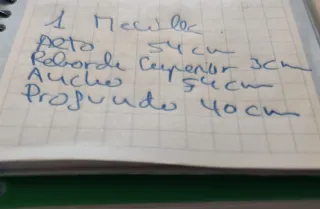 1 Mecibor
Alto 54cm
Reborde Superior 3cm
Ancho 54cm
Profundo 40cm